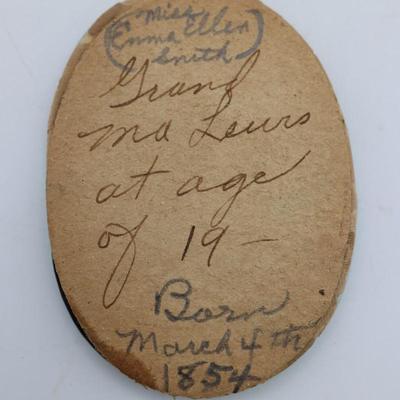 (Miss
Emma Ellen
Smith)
Grand
ma Lewis
at age
of 19 -
Born
March 4th
1854